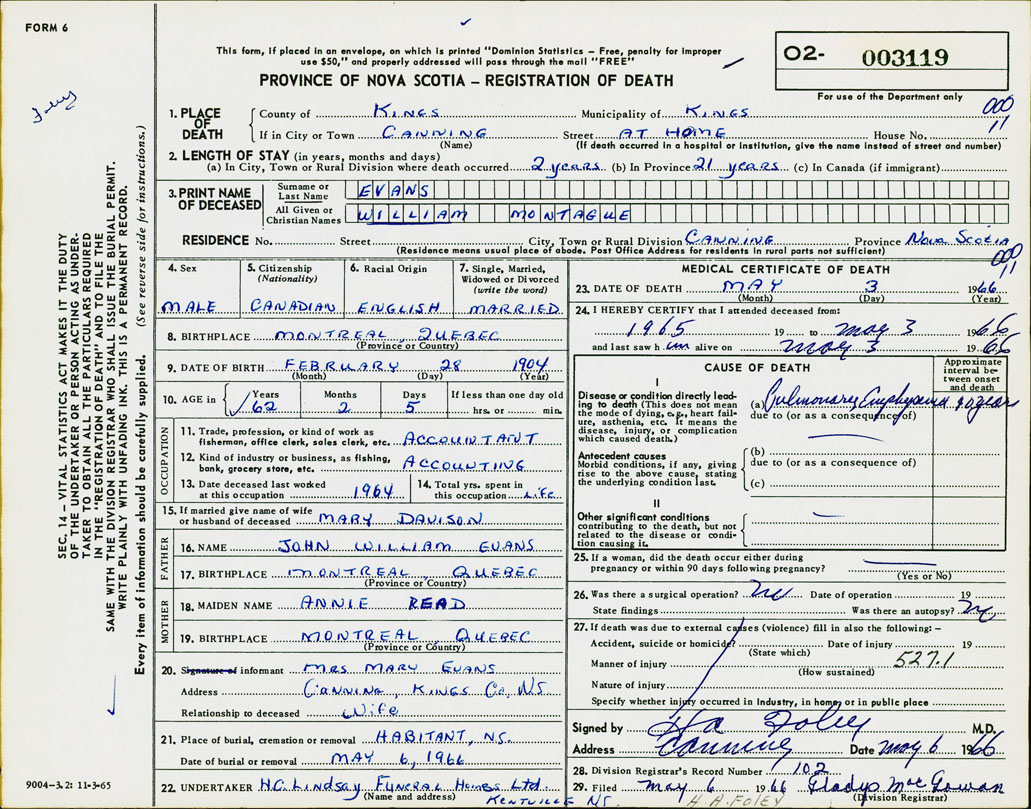 FORM 6
This form, if placed in an envelope, on which is printed "Dominion Statistics – Free, penalty for improper
use $50," and properly addressed will pass through the mail "FREE"
PROVINCE OF NOVA SCOTIA – REGISTRATION OF DEATH
O2- 003119
For use of the Department only
Foley
1. PLACE OF DEATH County of KINGS Municipality of KINGS 000 11
If in City or Town CANNING Street AT HOME House No.
(Name) (If death occurred in a hospital or institution, give the name instead of street and number)
2. LENGTH OF STAY (in years, months and days)
(a) In City, Town or Rural Division where death occurred 2 years (b) In Province 21 years (c) In Canada (if immigrant)
3. PRINT NAME OF DECEASED Surname or Last Name EVANS
All Given or Christian Names WILLIAM MONTAGUE
RESIDENCE No. Street City, Town or Rural Division CANNING Province NOVA SCOTIA
(Residence means usual place of abode. Post Office Address for residents in rural parts not sufficient) 000 11
4. Sex MALE
5. Citizenship (Nationality) CANADIAN
6. Racial Origin ENGLISH
7. Single, Married, Widowed or Divorced (write the word) MARRIED
8. BIRTHPLACE MONTREAL, QUEBEC
(Province or Country)
9. DATE OF BIRTH FEBRUARY 28 1904
(Month) (Day) (Year)
10. AGE in Years 62 Months 2 Days 5 If less than one day old hrs. or min.
OCCUPATION
11. Trade, profession, or kind of work as
fisherman, office clerk, sales clerk, etc. ACCOUNTANT
12. Kind of industry or business, as fishing,
bank, grocery store, etc. ACCOUNTING
13. Date deceased last worked
at this occupation 1964
14. Total yrs. spent in
this occupation Life
15. If married give name of wife
or husband of deceased MARY DAVISON
FATHER
16. NAME JOHN WILLIAM EVANS
17. BIRTHPLACE MONTREAL, QUEBEC
(Province or Country)
MOTHER
18. MAIDEN NAME ANNIE READ
19. BIRTHPLACE MONTREAL, QUEBEC
(Province or Country)
20. Signature of informant MRS MARY EVANS
Address CANNING, KINGS Co, NS
Relationship to deceased Wife
21. Place of burial, cremation or removal HABITANT, NS.
Date of burial or removal MAY 6, 1966
22. UNDERTAKER H.C. LINDSAY FUNERAL HOMES LTD.
(Name and address) KENTVILLE NS
MEDICAL CERTIFICATE OF DEATH
23. DATE OF DEATH MAY 3 1966
(Month) (Day) (Year)
24. I HEREBY CERTIFY that I attended deceased from:
1965 19 to May 3 1966
and last saw him alive on May 3 1966
CAUSE OF DEATH
Approximate interval between onset and death
I
Disease or condition directly leading
to death (This does not mean
the mode of dying, e.g., heart failure,
asthenia, etc. It means the
disease, injury, or complication
which caused death.)
(a) Pulmonary Emphysema years
due to (or as a consequence of)
Antecedent causes
Morbid conditions, if any, giving
rise to the above cause, stating
the underlying condition last.
(b)
due to (or as a consequence of)
(c)
II
Other significant conditions
contributing to the death, but not
related to the disease or condition
causing it.
25. If a woman, did the death occur either during
pregnancy or within 90 days following pregnancy?
(Yes or No)
26. Was there a surgical operation? no Date of operation 19
State findings Was there an autopsy? no
27. If death was due to external causes (violence) fill in also the following: –
Accident, suicide or homicide? Date of injury 19
(State which)
Manner of injury 527.1
(How sustained)
Nature of injury
Specify whether injury occurred in industry, in home, or in public place
Signed by Foley M.D.
Address Canning Date May 6 1966
28. Division Registrar's Record Number 102
29. Filed May 6 1966 Gladys MacGowan
(Division Registrar)
H.A. FOLEY
SEC. 14 – VITAL STATISTICS ACT MAKES IT THE DUTY
OF THE UNDERTAKER OR PERSON ACTING AS UNDER-
TAKER TO OBTAIN ALL THE PARTICULARS REQUIRED
IN THE "REGISTRATION OF DEATH" AND TO FILE THE
SAME WITH THE DIVISION REGISTRAR WHO SHALL ISSUE THE BURIAL PERMIT.
WRITE PLAINLY WITH UNFADING INK. THIS IS A PERMANENT RECORD.
Every item of information should be carefully supplied. (See reverse side for instructions.)
9004-3.2: 11-3-65